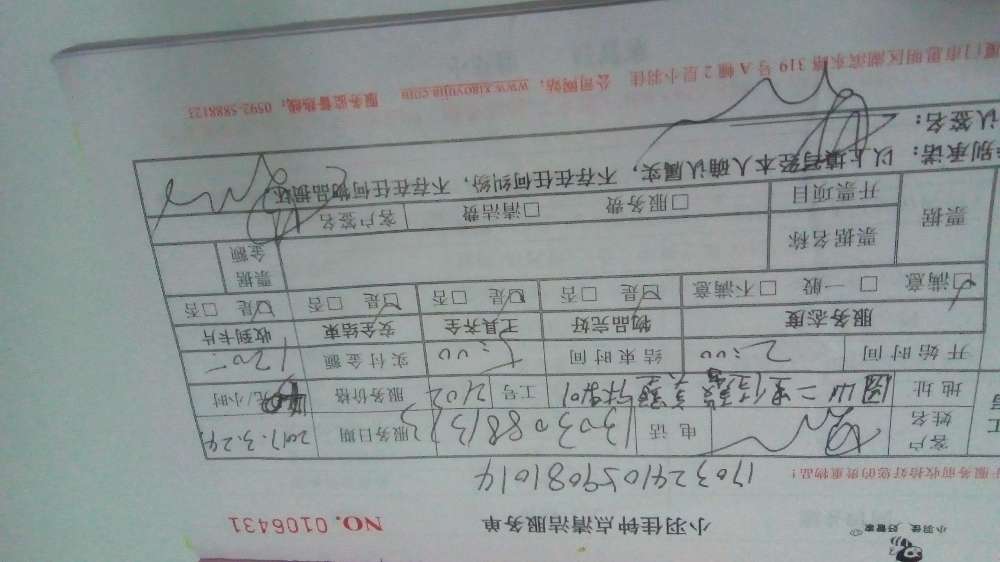 小羽佳 好管家
小羽佳钟点清洁服务单 NO. 0106431
1703241059081014
服务前收拾好您的贵重物品！
客户姓名 电话 服务日期 2017.3.24
地址 工号 2102 服务价格 元/小时
开始时间 2:00 结束时间 5:00 实付金额 120
服务态度 物品完好 工具齐全 安全结束 收到卡片
☑满意 □一般 □不满意 ☑是 □否 ☑是 □否 ☑是 □否 ☑是 □否
票据 票据名称 票据金额
开票项目 □服务费 □清洁费 客户签名
别承诺：以上填写经本人确认属实，不存在任何纠纷，不存在任何物品损坏
认签名：
厦门市思明区湖滨东路 319 号 A 幢 2 层小羽佳 公司网站：www.xiaoyujia.com 服务监督热线：0592-5888123